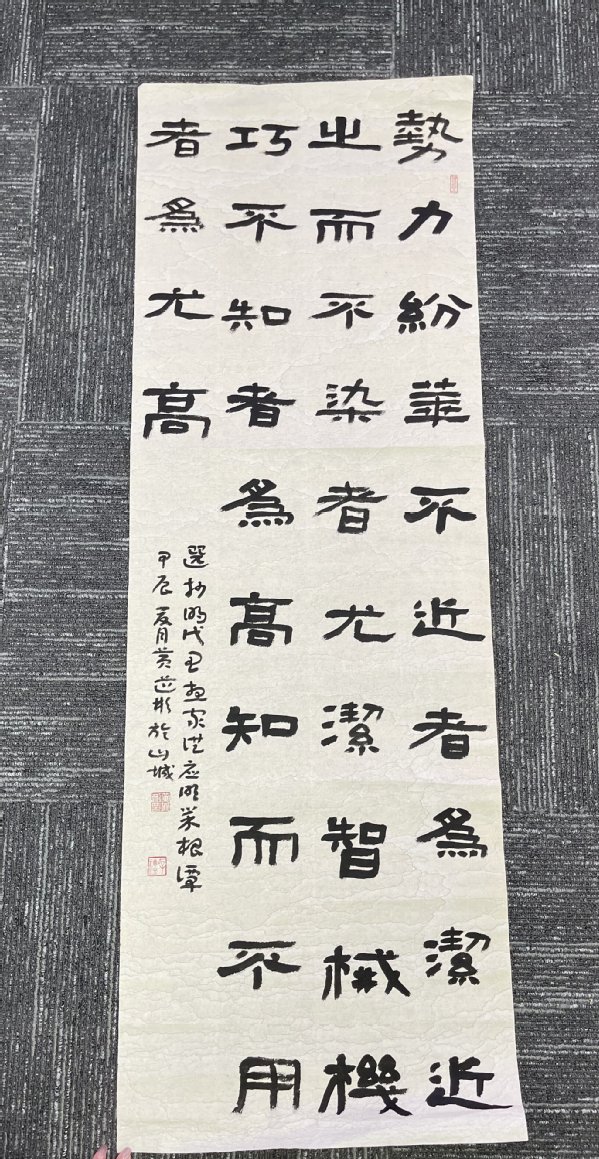 勢力紛華不近者爲潔近
之而不染者尤潔智械機
巧不知者爲高知而不用
者爲尤高
選抄明代思想家洪应明菜根譚
甲辰夏月黄於山城